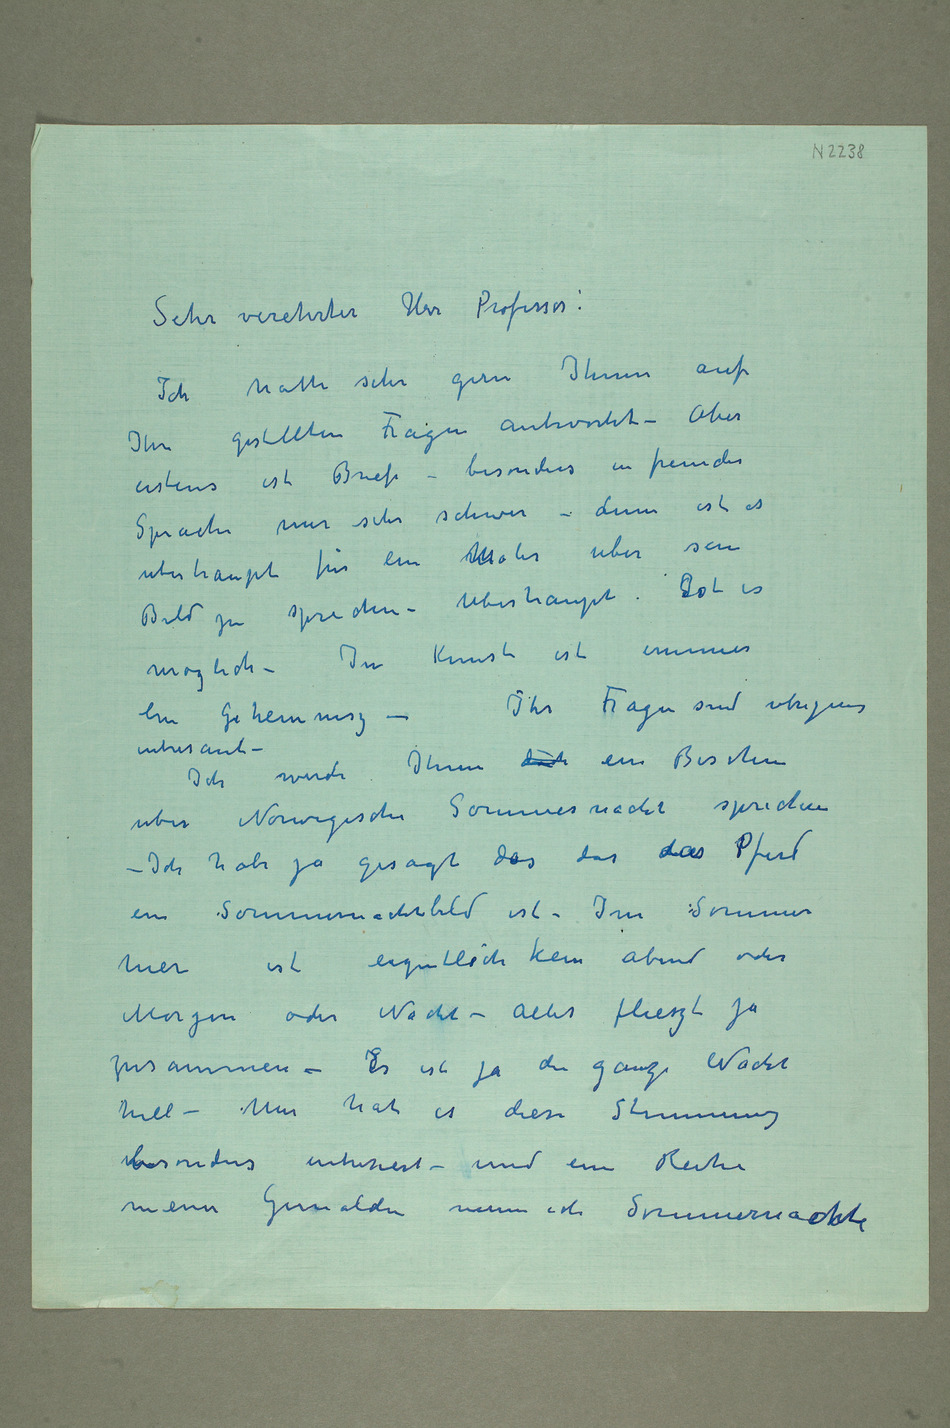 N 2238
Sehr verehrter Herr Professor!
Ich hätte sehr gern Ihnen auf
Ihre gestellten Fragen antwortet – Aber
erstens ist Briefe – besonders in fremder
Sprache mir sehr schwer – denn ist es
uberhaupt für ein Maler uber sein
Bild zu sprechen – Uberhaupt. Ist es
möglich – In Kunst ist immer
ein Geheimnisz – Ihre Fragen sind ubrigens
intresant –
Ich werde Ihnen ein Bischen
uber Norwegische Sommernacht sprechen
– Ich habe ja gesagt das das das Pferd
ein Sommernachtbild ist – Im Sommer
hier ist eigentlich kein abend oder
Morgen oder Nacht – alles flieszt ja
zusammen – Es ist ja die ganze Nacht
hell – Mir hat es diese Stimmung
besonders intresiert – und eine Reihe
meiner Gemälden nenne ich Sommernachte